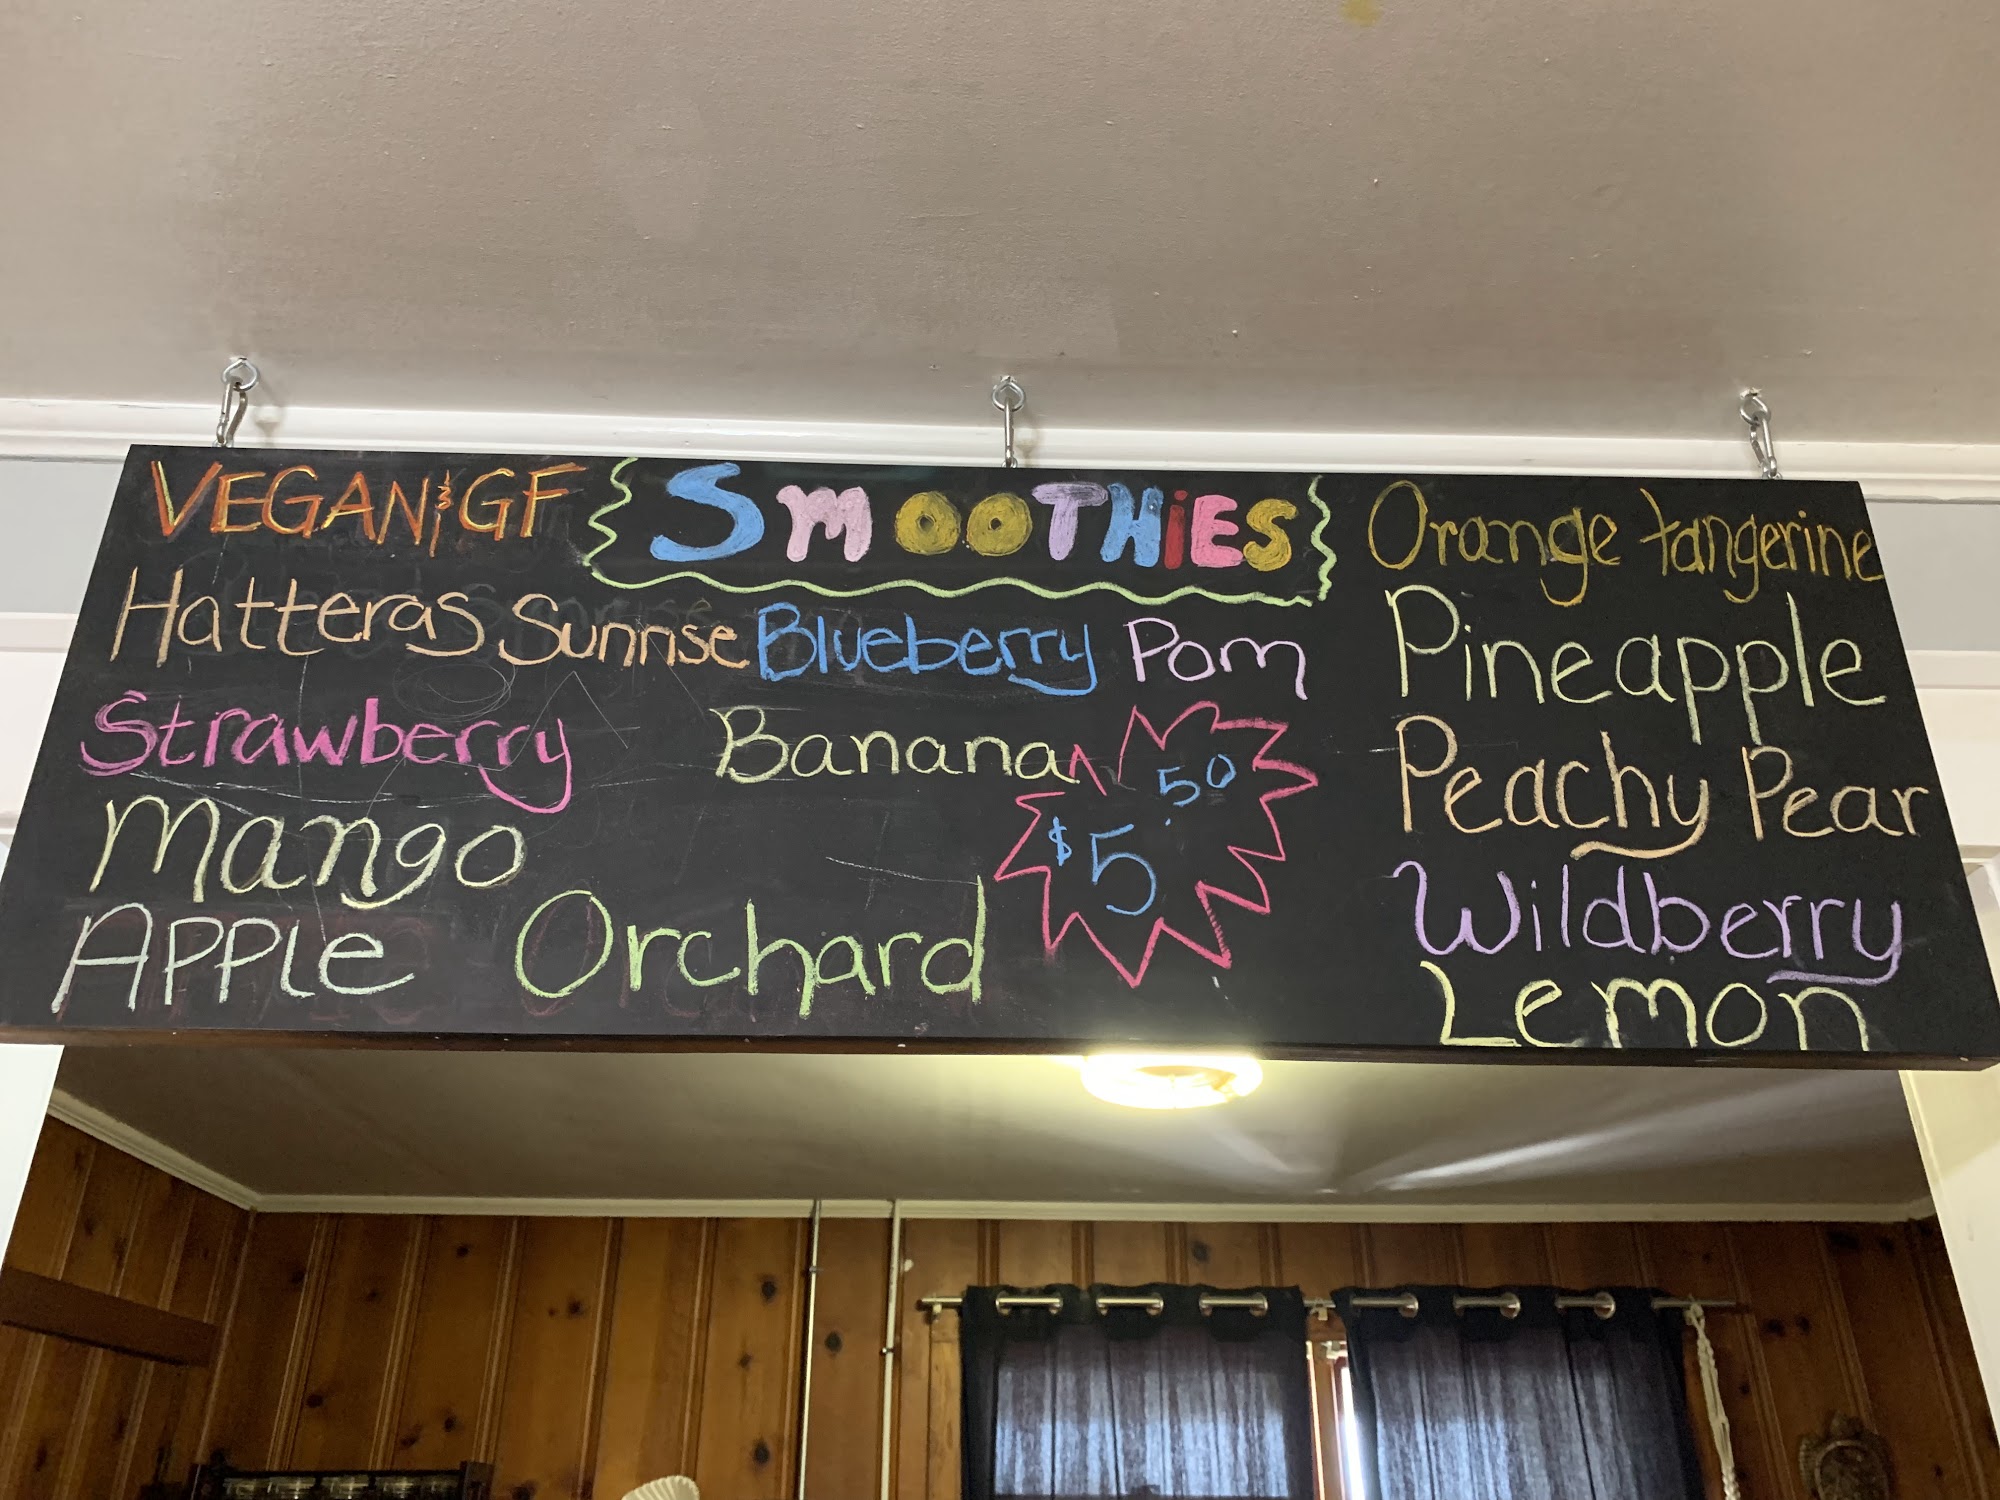 VEGAN & GF
SMOOTHiES
Hatteras Sunrise
Blueberry Pom
Strawberry
Banana
Mango
$5.50
APPLE Orchard
Orange tangerine
Pineapple
Peachy Pear
Wildberry
Lemon